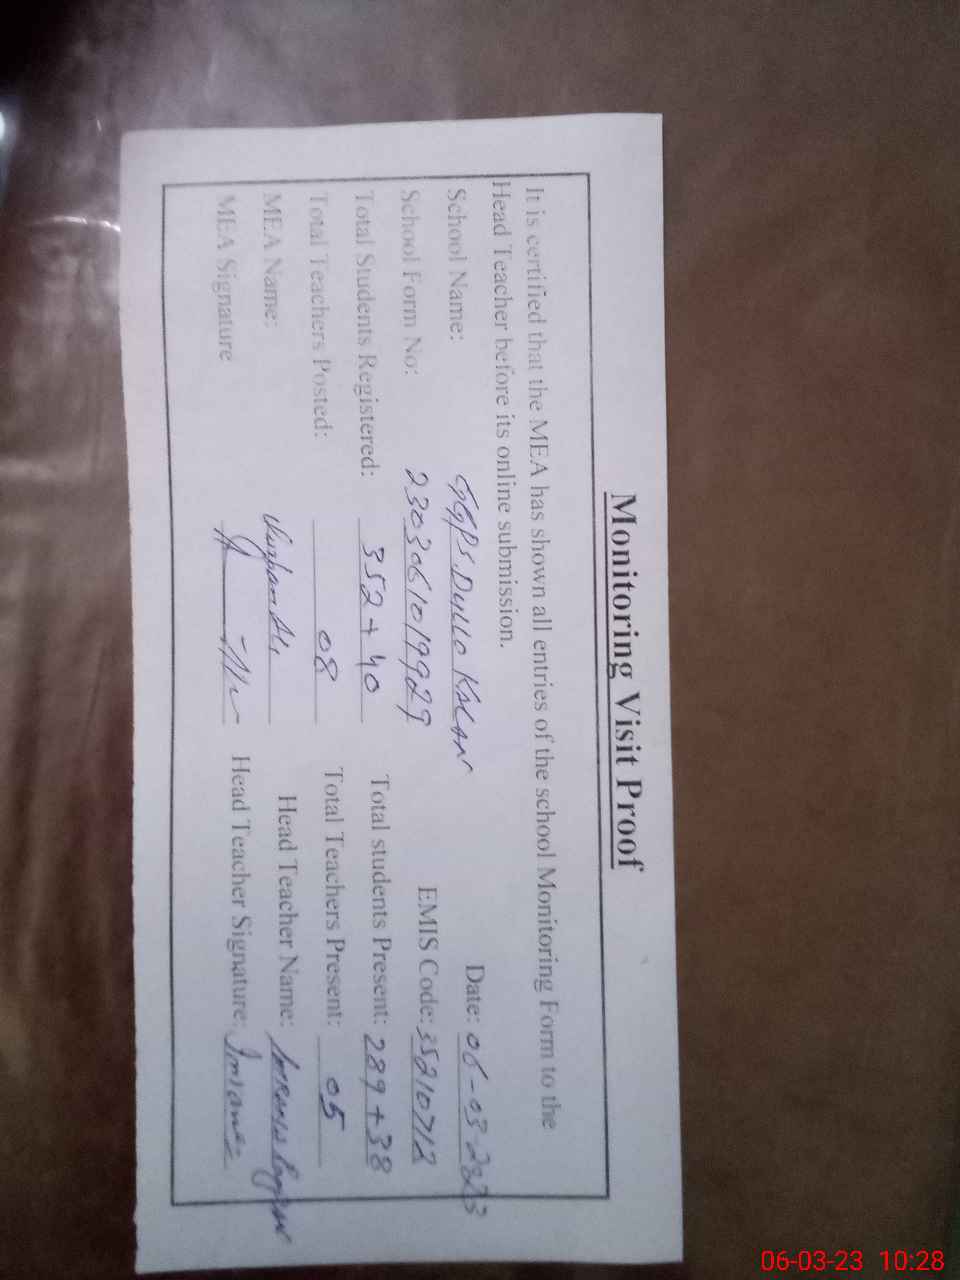 Monitoring Visit Proof
It is certified that the MEA has shown all entries of the school Monitoring Form to the
Head Teacher before its online submission.
Date: 06-03-2023
School Name: GGPS Dullo Kalan
School Form No: 2303061019929 EMIS Code: 35210712
Total Students Registered: 352+40 Total students Present: 289+38
Total Teachers Posted: 08 Total Teachers Present: 05
MEA Name: Head Teacher Name:
MEA Signature Head Teacher Signature:
06-03-23 10:28